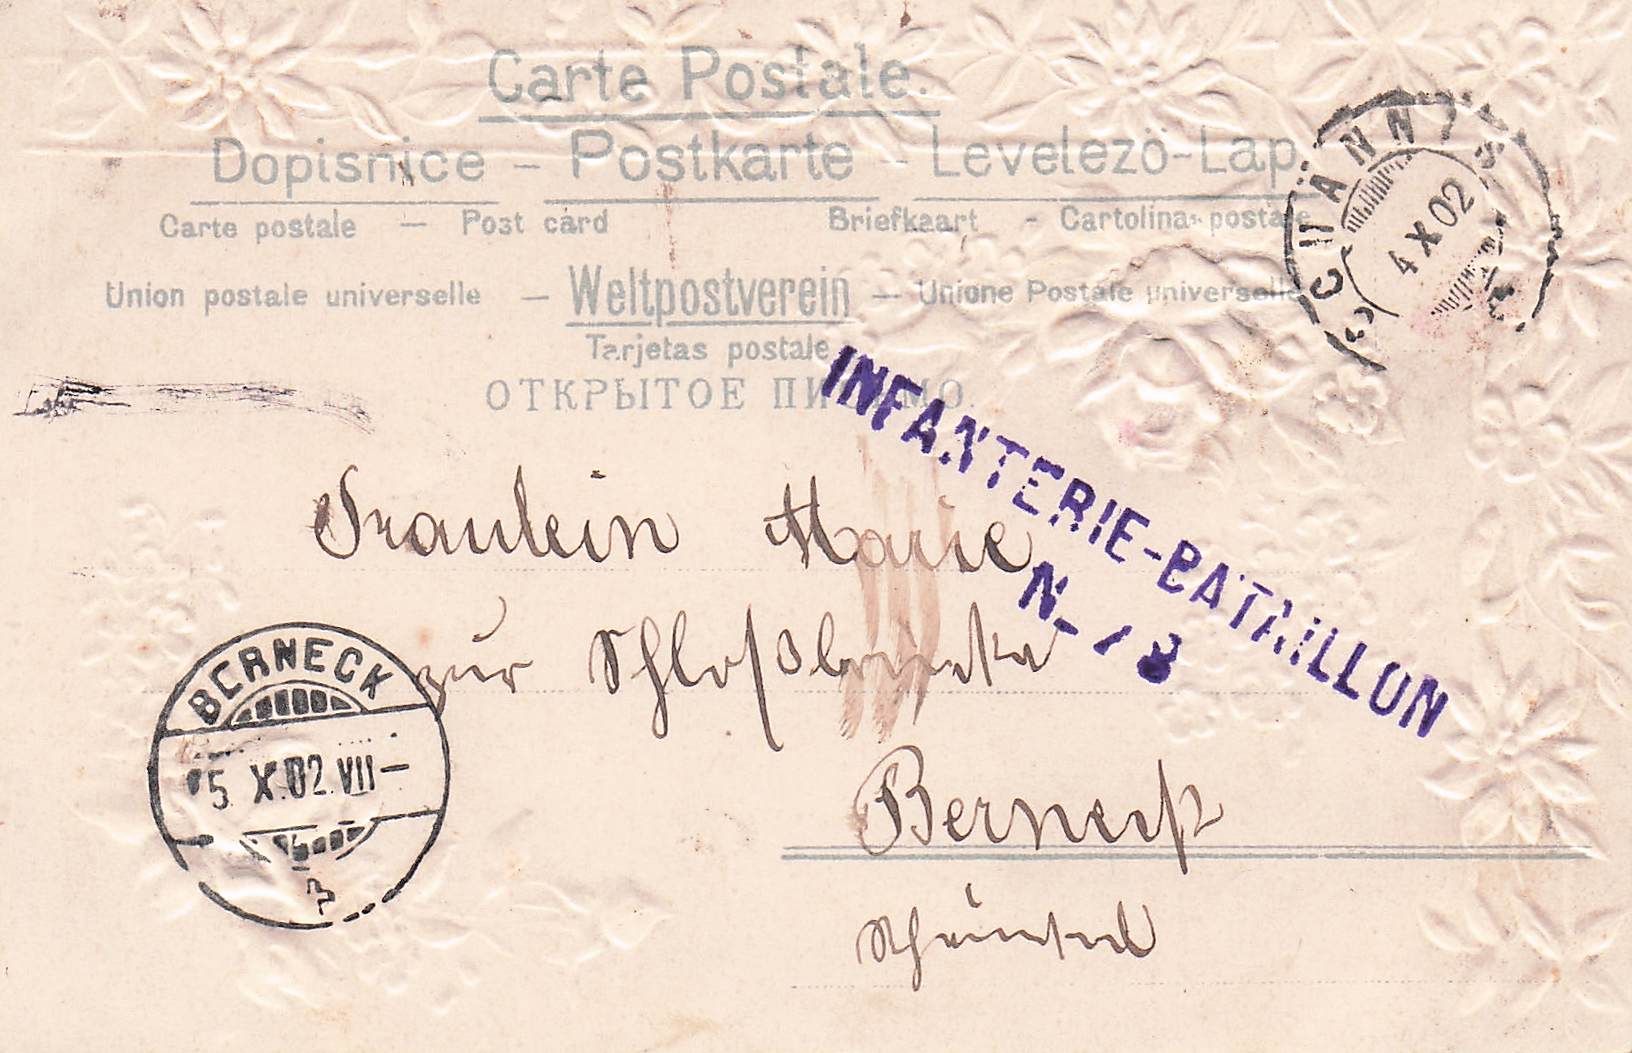 Carte Postale.
Dopisnice – Postkarte – Levelezö-Lap
Carte postale — Post card Briefkaart - Cartolina postale
Union postale universelle – Weltpostverein – Unione Postale universelle
Tarjetas postale
ОТКРЫТОЕ ПИСЬМО.
SCHÄNNIS
4 X 02
INFANTERIE-BATAILLON
N_ 78
Fräulein Marie
zur Schloßbrücke
Berneck
Rheintal
BERNECK
5. X. 02. VII –